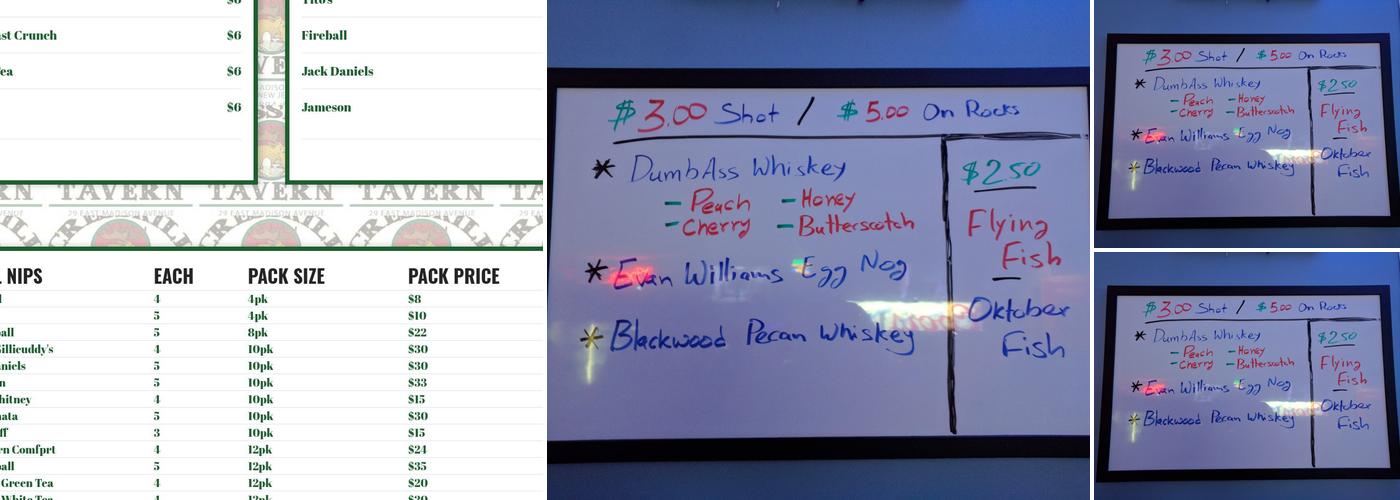 $6
Tito's
st Crunch $6
Fireball
ea $6
Jack Daniels
$6
Jameson
TAVERN TAVERN TAVERN
29 EAST MADISON AVENUE 29 EAST MADISON AVENUE 29 EAST MADISON AVENUE
NIPS EACH PACK SIZE PACK PRICE
4 4pk $8
5 4pk $10
ball 5 8pk $22
Gillicuddy's 4 10pk $30
aniels 5 10pk $30
n 5 10pk $33
hitney 4 10pk $15
nata 5 10pk $30
ff 3 10pk $15
rn Comfprt 4 12pk $24
ball 5 12pk $35
Green Tea 4 12pk $20
White Tea 4 12pk $20
$3.00 Shot / $5.00 On Rocks
* DumbAss Whiskey
- Peach - Honey
- Cherry - Butterscotch
* Evan Williams Egg Nog
* Blackwood Pecan Whiskey
$2.50
Flying
Fish
Oktober
Fish
$3.00 Shot / $5.00 On Rocks
* DumbAss Whiskey
- Peach - Honey
- Cherry - Butterscotch
* Evan Williams Egg Nog
* Blackwood Pecan Whiskey
$2.50
Flying
Fish
Oktober
Fish
$3.00 Shot / $5.00 On Rocks
* DumbAss Whiskey
- Peach - Honey
- Cherry - Butterscotch
* Evan Williams Egg Nog
* Blackwood Pecan Whiskey
$2.50
Flying
Fish
Oktober
Fish